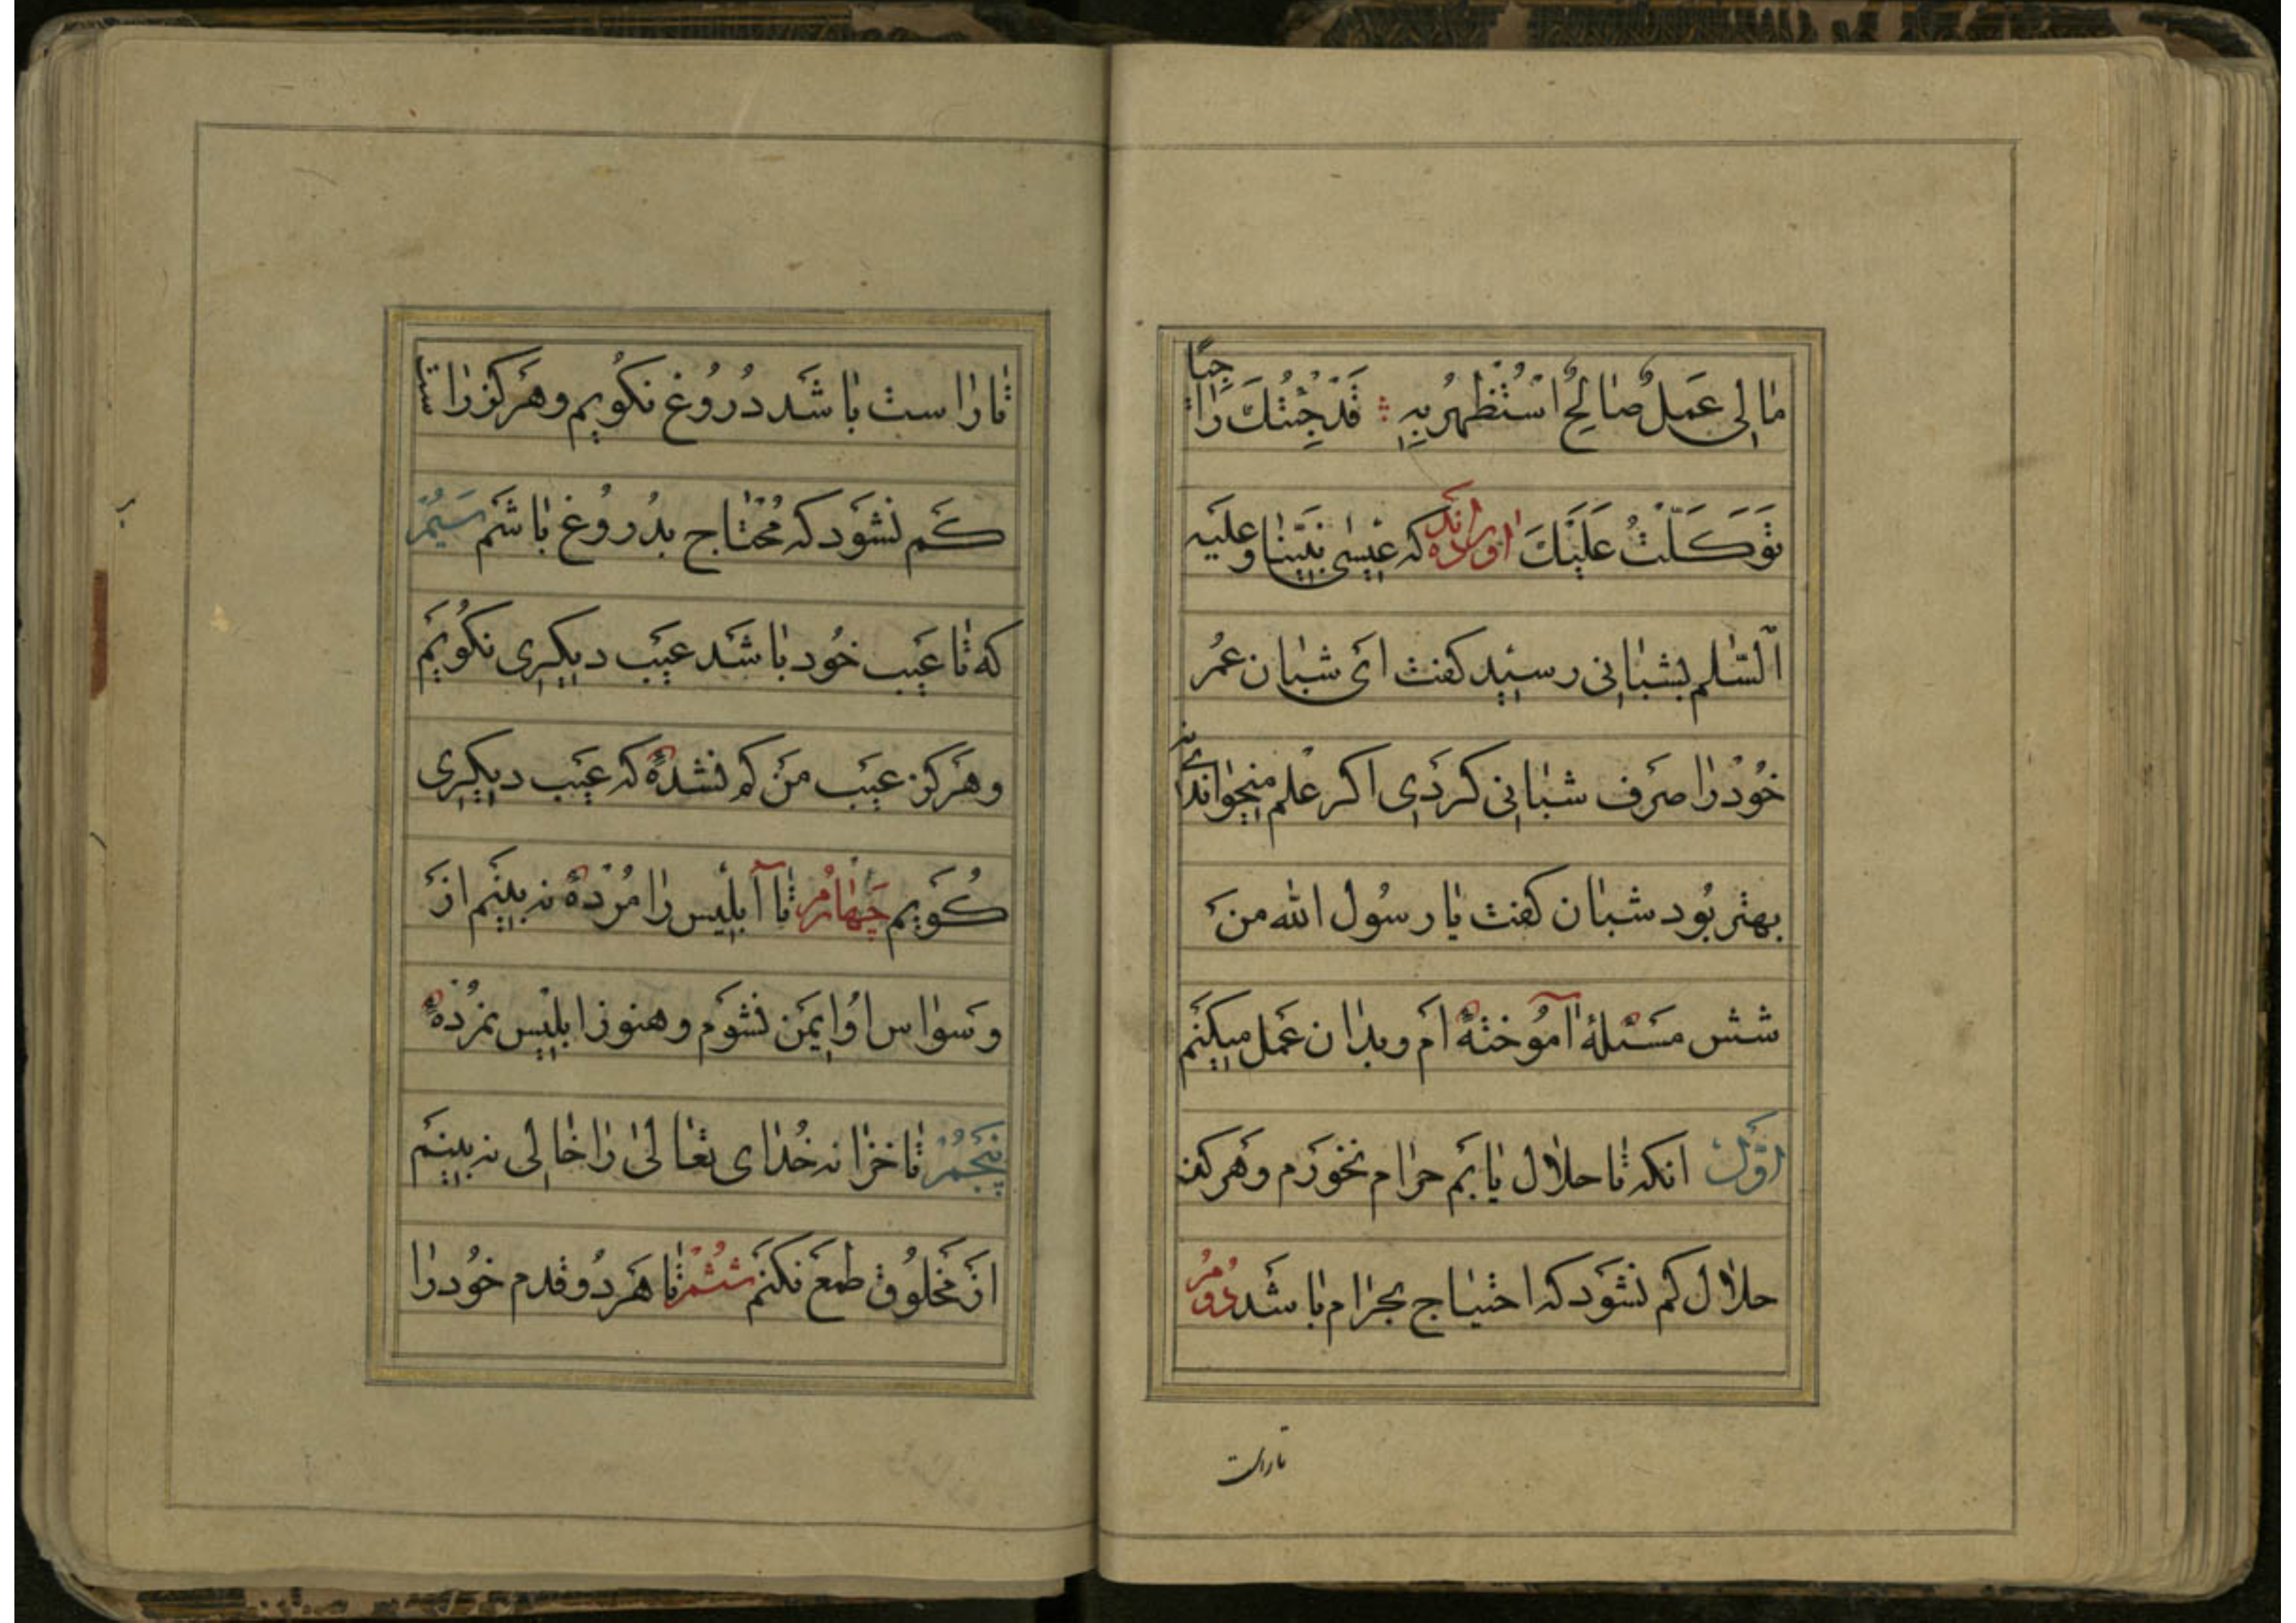 مٰا لِی عَمَلٌ صٰالِحٌ اَسْتَظْهِرُ بِهِ ؞ قَدْ جِئْتُكَ رٰاجِیًا
تَوَكَّلْتُ عَلَیْكَ اورده‌اند که عیسی نبینا و علیه
السّلم بشبانی رسید کفت ای شبان عمر
خُود را صرف شبانی کردی اکر علم میخواندی
بهتر بُود شبان کفت یا رسُول الله من
شش مسئلهٔ آمُوخته ام و بدان عمل میکنم
اوّل انکه تا حلال یابم حرام نخورم و هرکز
حلال کم نشود که احتیاج بحرام باشد دُوم
تاراست
تا راست باشد دُرُوغ نکویم و هرکز راستی
کم نشود که مُحتاج بدرُوغ باشم سیم
که تا عیب خُود باشد عیب دیکری نکویم
و هرکز عیب من کم نشده که عیب دیکری
کُویم چهارم تا ابلیس را مُرده نه بینم از
وسواس اُو ایمن نشوم و هنوز ابلیس نمرده
پنجم تا خزانه خُدای تعالی را خالی نه بینم
از مخلُوق طمع نکنم ششم تا هر دُو قدم خُود را